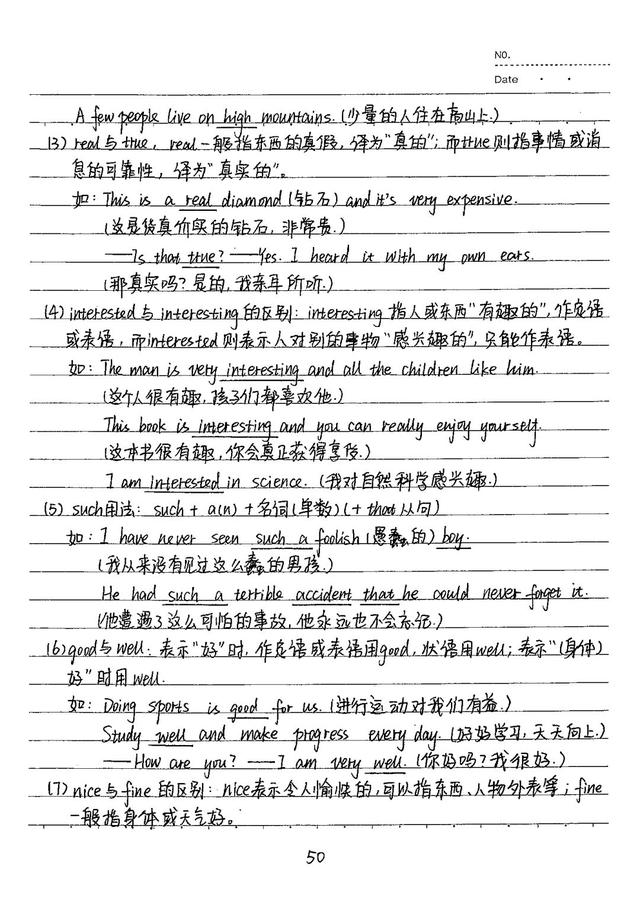 NO.
Date · ·
A few people live on high mountains. (少量的人住在高山上.)
(3) real与true, real一般指东西的真假, 译为"真的"; 而true则指事情或消
息的可靠性, 译为"真实的"。
如: This is a real diamond (钻石) and it's very expensive.
(这是货真价实的钻石, 非常贵.)
——Is that true? ——Yes. I heard it with my own ears.
(那真实吗? 是的, 我亲耳所听.)
(4) interested与interesting的区别: interesting指人或东西"有趣的", 作定语
或表语, 而interested则表示人对别的事物"感兴趣的", 只能作表语。
如: The man is very interesting and all the children like him.
(这个人很有趣, 孩子们都喜欢他.)
This book is interesting and you can really enjoy yourself.
(这本书很有趣, 你会真正获得享受.)
I am interested in science. (我对自然科学感兴趣.)
(5) such用法: such + a(n) + 名词(单数) (+ that从句)
如: I have never seen such a foolish (愚蠢的) boy.
(我从来没有见过这么蠢的男孩.)
He had such a terrible accident that he could never forget it.
(他遭遇了这么可怕的事故, 他永远也不会忘记.)
(6) good与well: 表示"好"时, 作定语或表语用good, 状语用well; 表示"(身体)
好"时用well.
如: Doing sports is good for us. (进行运动对我们有益.)
Study well and make progress every day. (好好学习, 天天向上.)
——How are you? ——I am very well. (你好吗? 我很好.)
(7) nice与fine的区别: nice表示令人愉快的, 可以指东西、人物外表等; fine
一般指身体或天气好。
50